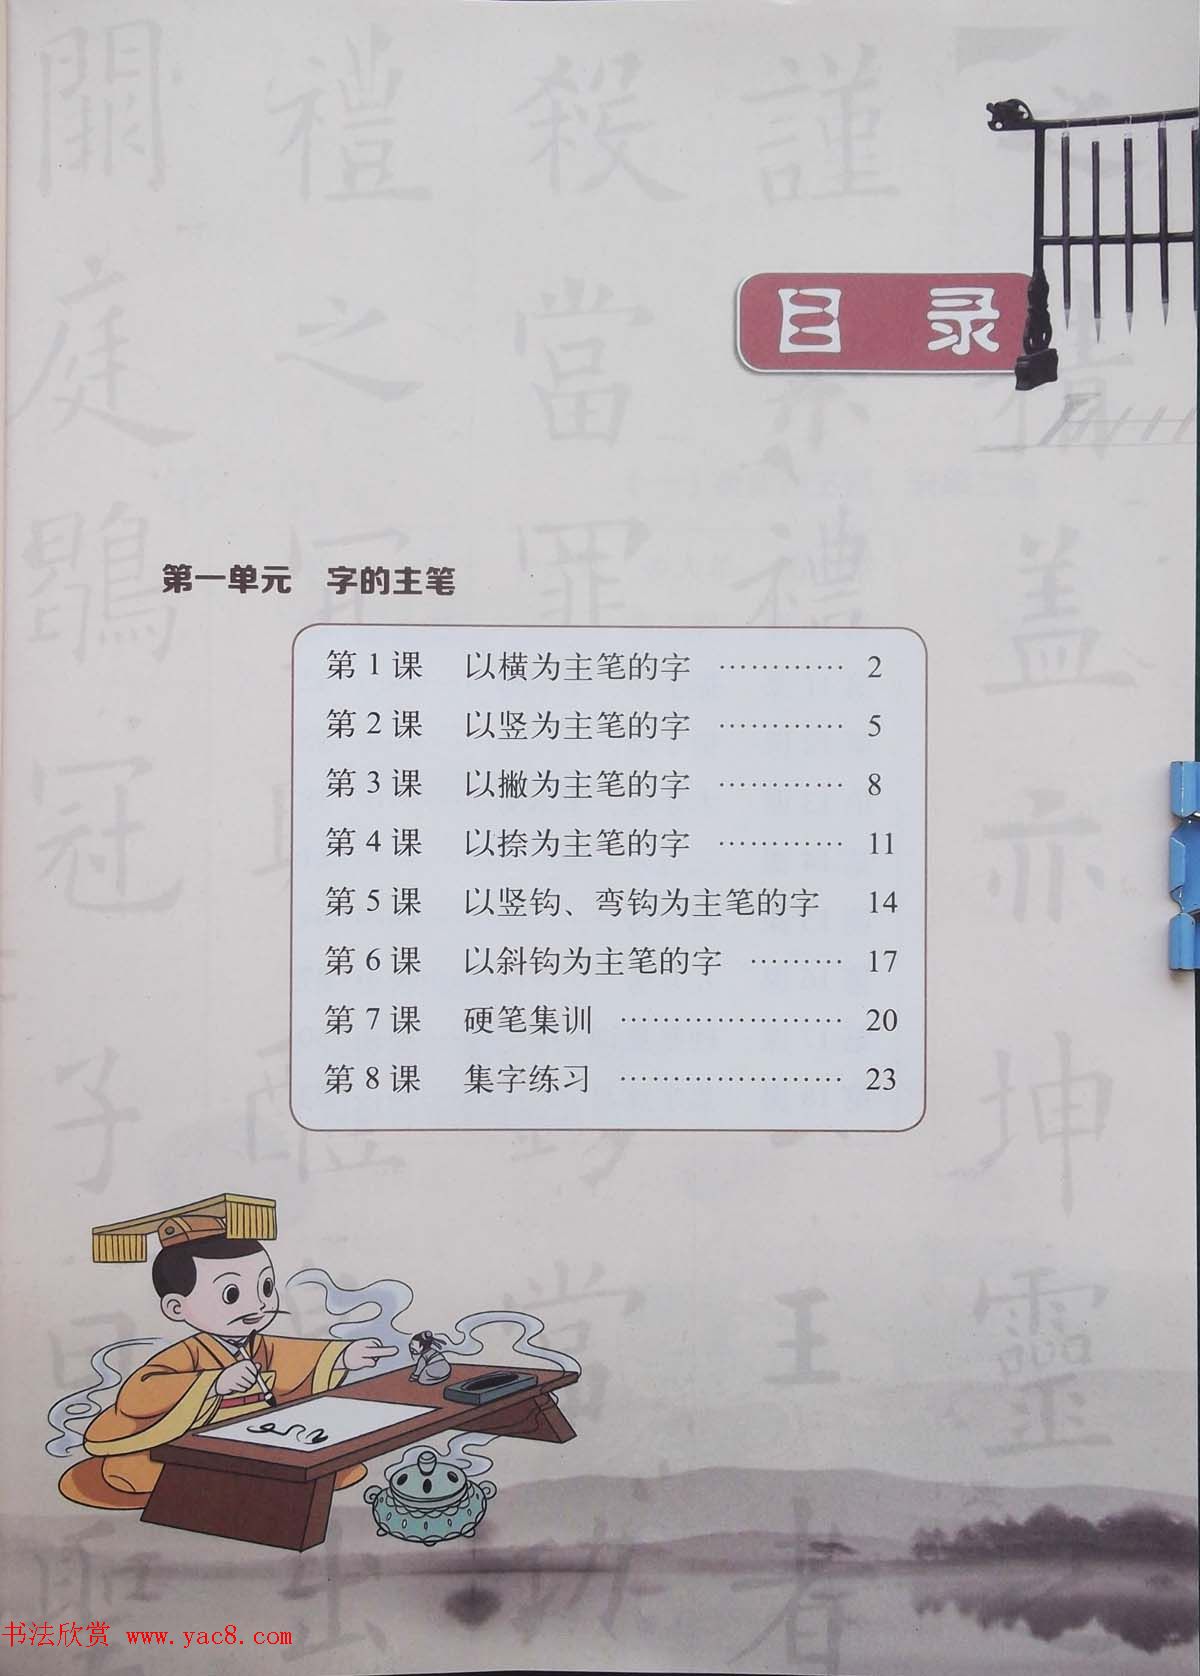 目 录
第一单元 字的主笔
第 1 课 以横为主笔的字 ………… 2
第 2 课 以竖为主笔的字 ………… 5
第 3 课 以撇为主笔的字 ………… 8
第 4 课 以捺为主笔的字 ………… 11
第 5 课 以竖钩、弯钩为主笔的字 14
第 6 课 以斜钩为主笔的字 ……… 17
第 7 课 硬笔集训 ………………… 20
第 8 课 集字练习 ………………… 23
书法欣赏 www.yac8.com